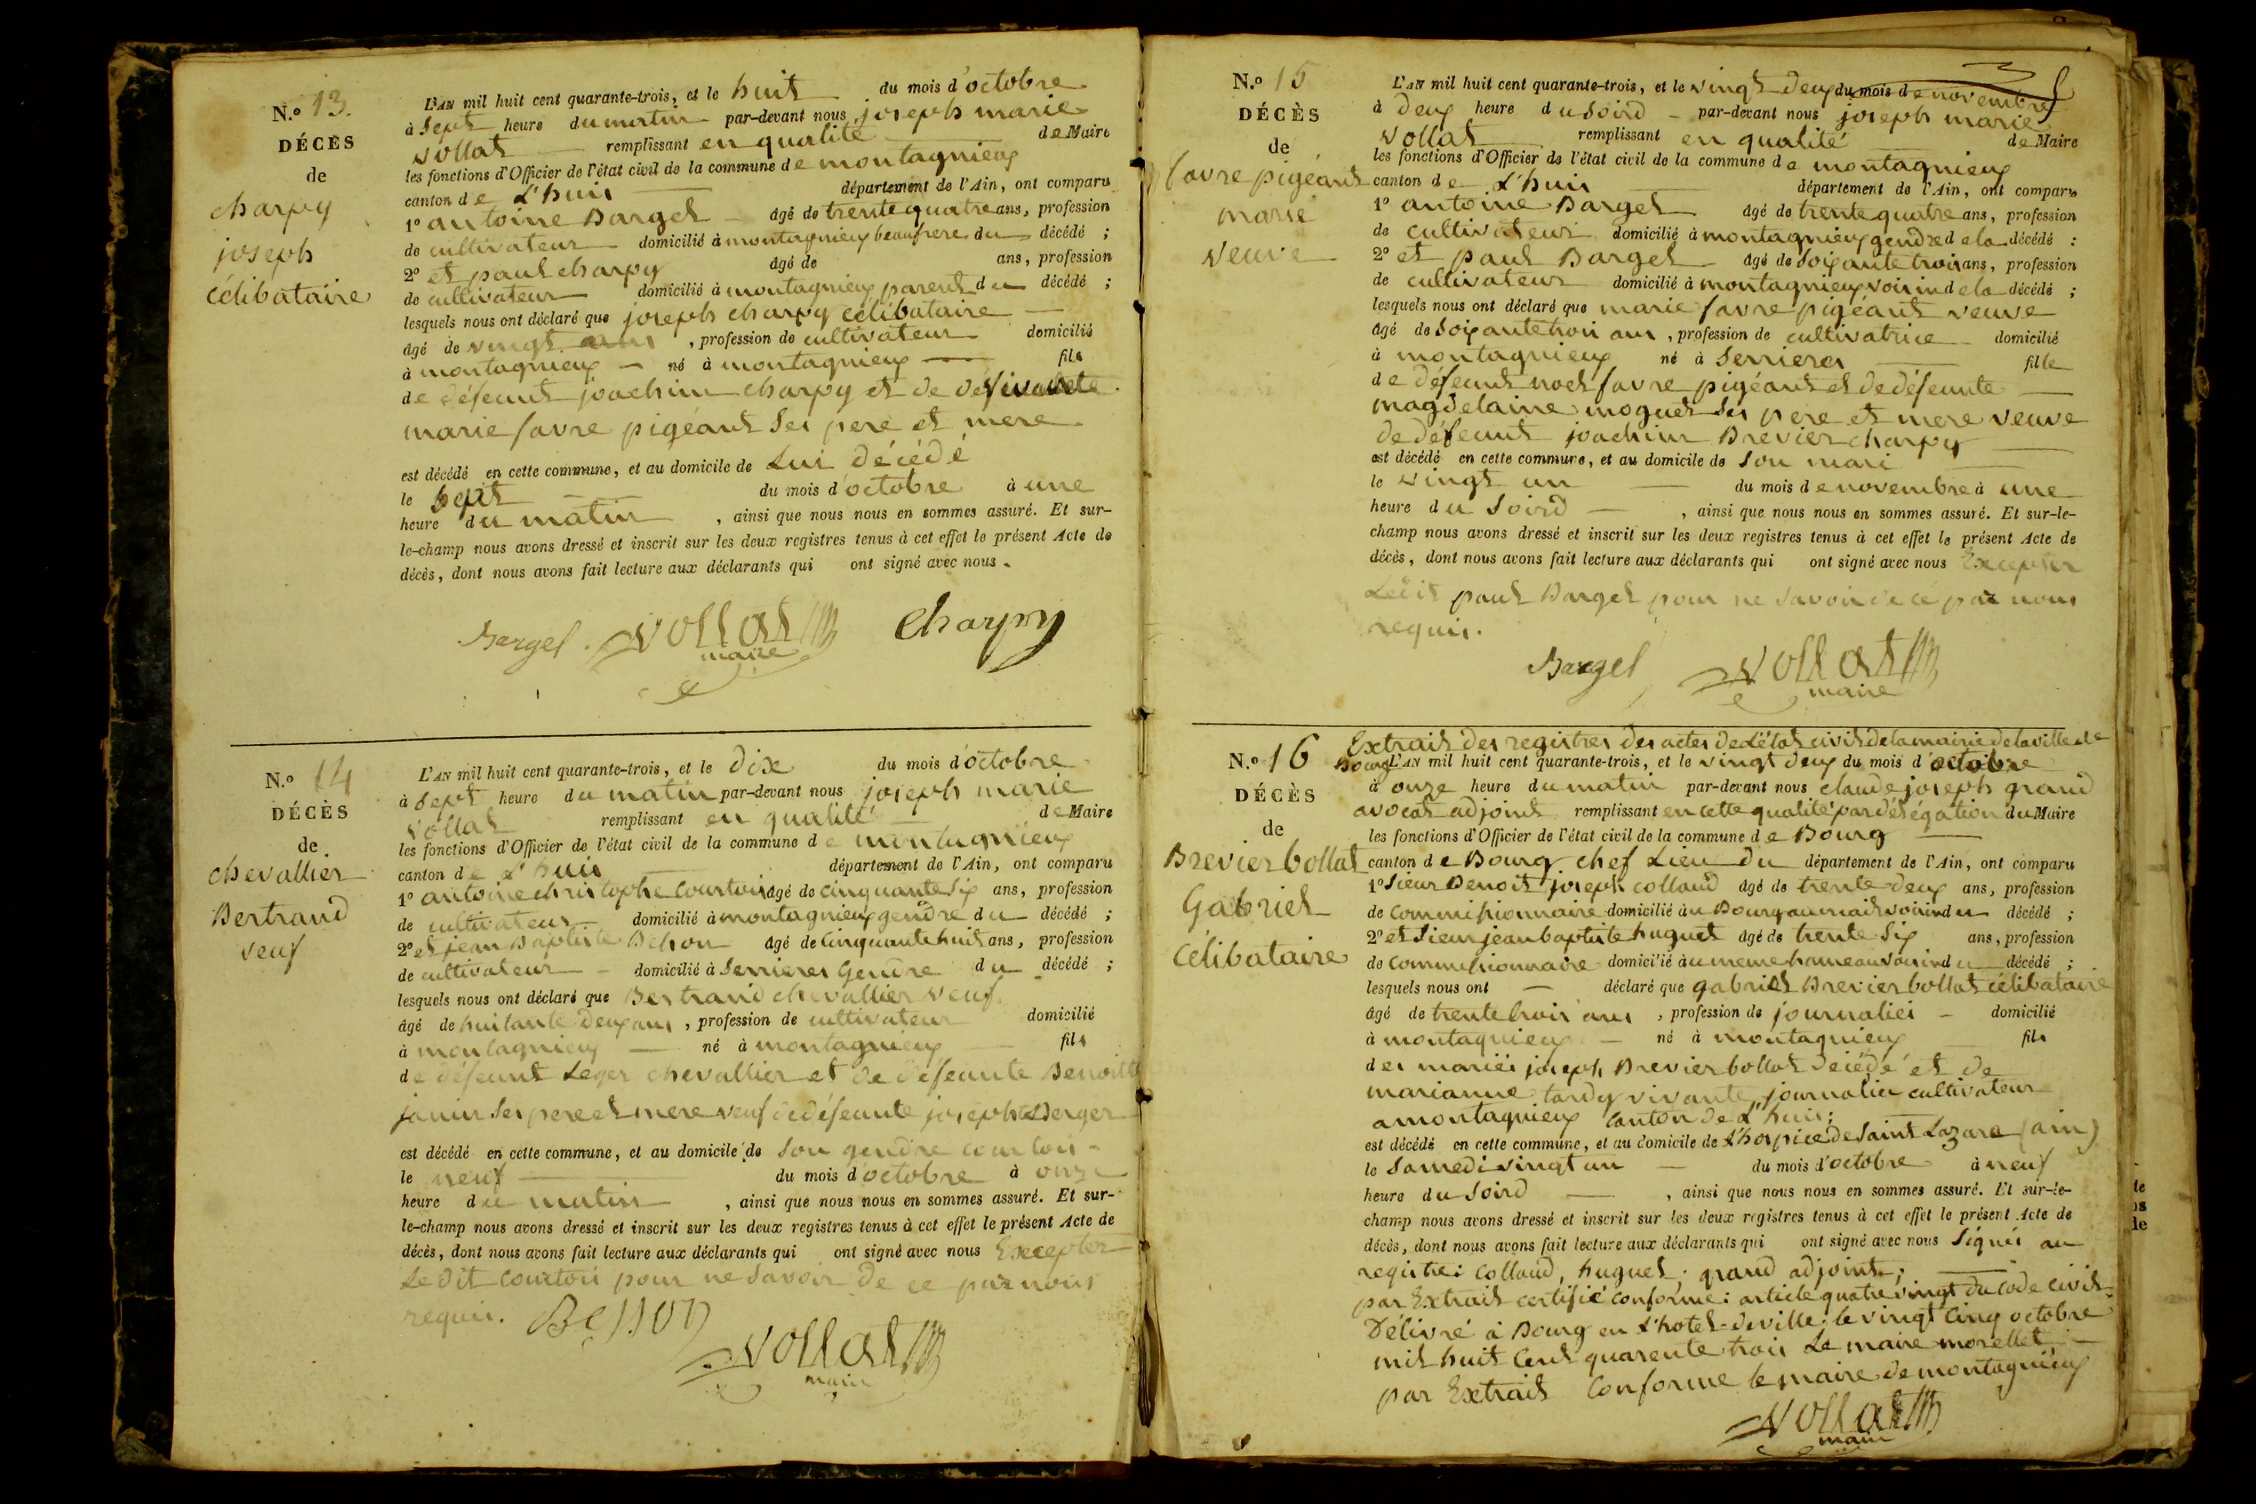 N.º 13.
DÉCÈS
de
charpy
joseph
célibataire
L'AN mil huit cent quarante-trois, et le huit du mois d'octobre
à sept heure du matin par-devant nous joseph marie
vollat remplissant en qualité de Maire
les fonctions d'Officier de l'état civil de la commune de montagnieux
canton de L'huis département de l'Ain, ont comparu
1º antoine Barget âgé de trente quatre ans, profession
de cultivateur domicilié à montagnieux beaufrere du décédé ;
2º et paul charpy âgé de ans, profession
de cultivateur domicilié à montagnieux parent du décédé ;
lesquels nous ont déclaré que joseph charpy célibataire
âgé de vingt ans , profession de cultivateur domicilié
à montagnieux né à montagnieux fils
de défeunt joachim charpy et de
marie favre pigéant ses pere et mere
est décédé en cette commune, et au domicile de Lui décédé
le sept du mois d'octobre à une
heure du matin , ainsi que nous nous en sommes assuré. Et sur-
le-champ nous avons dressé et inscrit sur les deux registres tenus à cet effet le présent Acte de
décès, dont nous avons fait lecture aux déclarants qui ont signé avec nous.
Bargel. vollat Charpy
maire
N.º 14
DÉCÈS
de
chevallier
Bertrand
veuf
L'AN mil huit cent quarante-trois, et le dix du mois d'octobre
à sept heure du matin par-devant nous joseph marie
vollat remplissant en qualité de Maire
les fonctions d'Officier de l'état civil de la commune de montagnieux
canton de L'huis département de l'Ain, ont comparu
1º antoine christophe courtois âgé de cinquante six ans, profession
de cultivateur domicilié à montagnieux gendre du décédé ;
2º et jean Baptiste Beson âgé de cinquante huit ans, profession
de cultivateur domicilié à serrieres Gendre du décédé ;
lesquels nous ont déclaré que Bertrand chevallier veuf
âgé de huitante deux ans , profession de cultivateur domicilié
à montagnieux né à montagnieux fils
de défeunt Leger chevallier et de défeunte Benoitte
janin ses pere et mere veuf de défeunte josephte Berger
est décédé en cette commune, et au domicile de son gendre courtois
le neuf du mois d'octobre à onze
heure du matin , ainsi que nous nous en sommes assuré. Et sur-
le-champ nous avons dressé et inscrit sur les deux registres tenus à cet effet le présent Acte de
décès, dont nous avons fait lecture aux déclarants qui ont signé avec nous Excepter
Le dit courtois pour ne savoir de ce par nous
requis. Besson
vollat
maire
N.º 15
DÉCÈS
de
favre pigéant
marie
veuve
L'AN mil huit cent quarante-trois, et le vingt deux du mois de novembre
à deux heure du soird par-devant nous joseph marie
vollat remplissant en qualité de Maire
les fonctions d'Officier de l'état civil de la commune de montagnieux
canton de L'huis département de l'Ain, ont comparu
1º antoine Barget âgé de trente quatre ans, profession
de cultivateur domicilié à montagnieux gendre de la décédé ;
2º et paul Barget âgé de soixante trois ans, profession
de cultivateur domicilié à montagnieux voisin de la décédé ;
lesquels nous ont déclaré que marie favre pigéant veuve
âgé de soixante trois ans , profession de cultivatrice domicilié
à montagnieux né à serrieres fille
de défeunt noel favre pigéant et de défeunte
magdelaine moguet ses pere et mere veuve
de défeunt joachim Brevier charpy
est décédé en cette commune, et au domicile de son mari
le vingt un du mois de novembre à une
heure du soird , ainsi que nous nous en sommes assuré. Et sur-le-
champ nous avons dressé et inscrit sur les deux registres tenus à cet effet le présent Acte de
décès, dont nous avons fait lecture aux déclarants qui ont signé avec nous Excepter
Ledit paul Barget pour ne savoir de ce par nous
requis.
Bargel vollat
maire
N.º 16
DÉCÈS
de
Brevier bollat
Gabriel
célibataire
Extrait des registres des actes de L'état civil de la mairie de la ville de
Bourg L'AN mil huit cent quarante-trois, et le vingt deux du mois d'octobre
à onze heure du matin par-devant nous claude joseph grand
avocat adjoint remplissant en cette qualité par délégation du Maire
les fonctions d'Officier de l'état civil de la commune de Bourg
canton de Bourg chef Lieu du département de l'Ain, ont comparu
1º sieur Benoit joseph collaud âgé de trente deux ans, profession
de commissionnaire domicilié à Bourg voisin du décédé ;
2º et sieur jean baptiste huguet âgé de trente six ans, profession
de commissionnaire domicilié au meme hameau voisin du décédé ;
lesquels nous ont déclaré que gabriel Brevier bollat célibataire
âgé de trente trois ans , profession de journalier domicilié
à montagnieux né à montagnieux fils
des mariés joseph Brevier bollat décédé et de
marianne tardy vivante, journalier cultivateur
a montagnieux canton de L'huis;
est décédé en cette commune, et au domicile de L'hospice de saint Lazare (ain)
le samedi vingt un du mois d'octobre à neuf
heure du soird , ainsi que nous nous en sommes assuré. Et sur-le-
champ nous avons dressé et inscrit sur les deux registres tenus à cet effet le présent Acte de
décès, dont nous avons fait lecture aux déclarants qui ont signé avec nous signés au
registre: collaud, huguet; grand adjoint;
par Extrait certifié conforme: article quatre vingt du code civil
Délivré à Bourg en L'hotel-de ville; le vingt cinq octobre
mil huit cent quarente trois Le maire morellet
par Extrait conforme le maire de montagnieux
vollat
maire